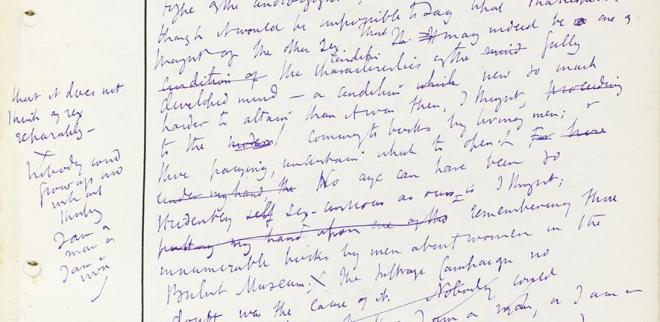 that it does not
think of sex
separately –
Nobody could
grow up now
without
thinking
I am a
man or
I am a
type of the androgynous
though it would be impossible to say what Shakespeare
thought of the other sex. That it may indeed be one of
condition of the characteristics of the mind fully
developed mind – a condition which now so much
harder to attain than it was then, I thought, proceeding
to the coming to books by living men; &
there pausing, uncertain what to open. For here
under my hand the No age can have been so
stridently self sex-conscious as ours is I thought;
putting my hand upon one of the remembering those
innumerable books by men about women in the
British Museum; The suffrage campaign no
doubt was the cause of it. Nobody could
I am a man, or I am a